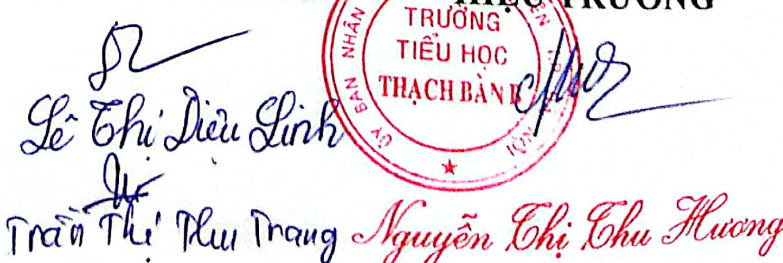 HIỆU TRƯỞNG
TRƯỜNG
TIỂU HỌC
THẠCH BÀN B
ỦY BAN NHÂN
Lê Thị Diệu Linh
Trần Thị Thu Trang
Nguyễn Thị Thu Hương